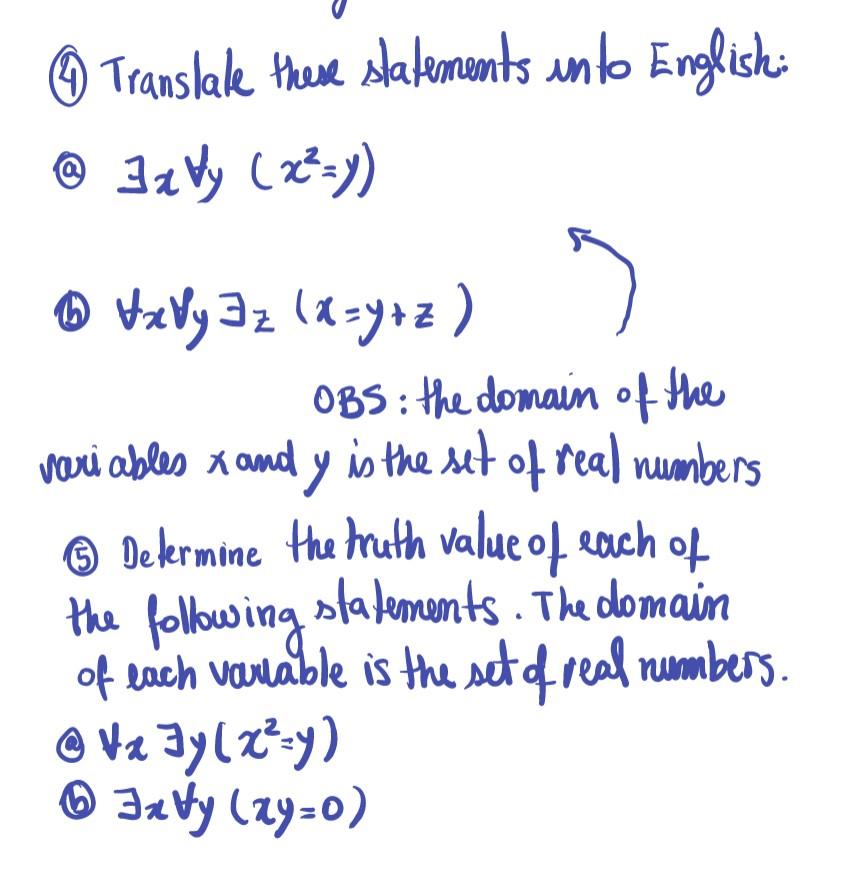 ④ Translate these statements into English:
ⓐ ∃x∀y (x²=y)
ⓑ ∀x∀y∃z (x=y+z)
OBS: the domain of the
variables x and y is the set of real numbers
⑤ Determine the truth value of each of
the following statements. The domain
of each variable is the set of real numbers.
ⓐ ∀x ∃y (x²=y)
ⓑ ∃x∀y (xy=0)